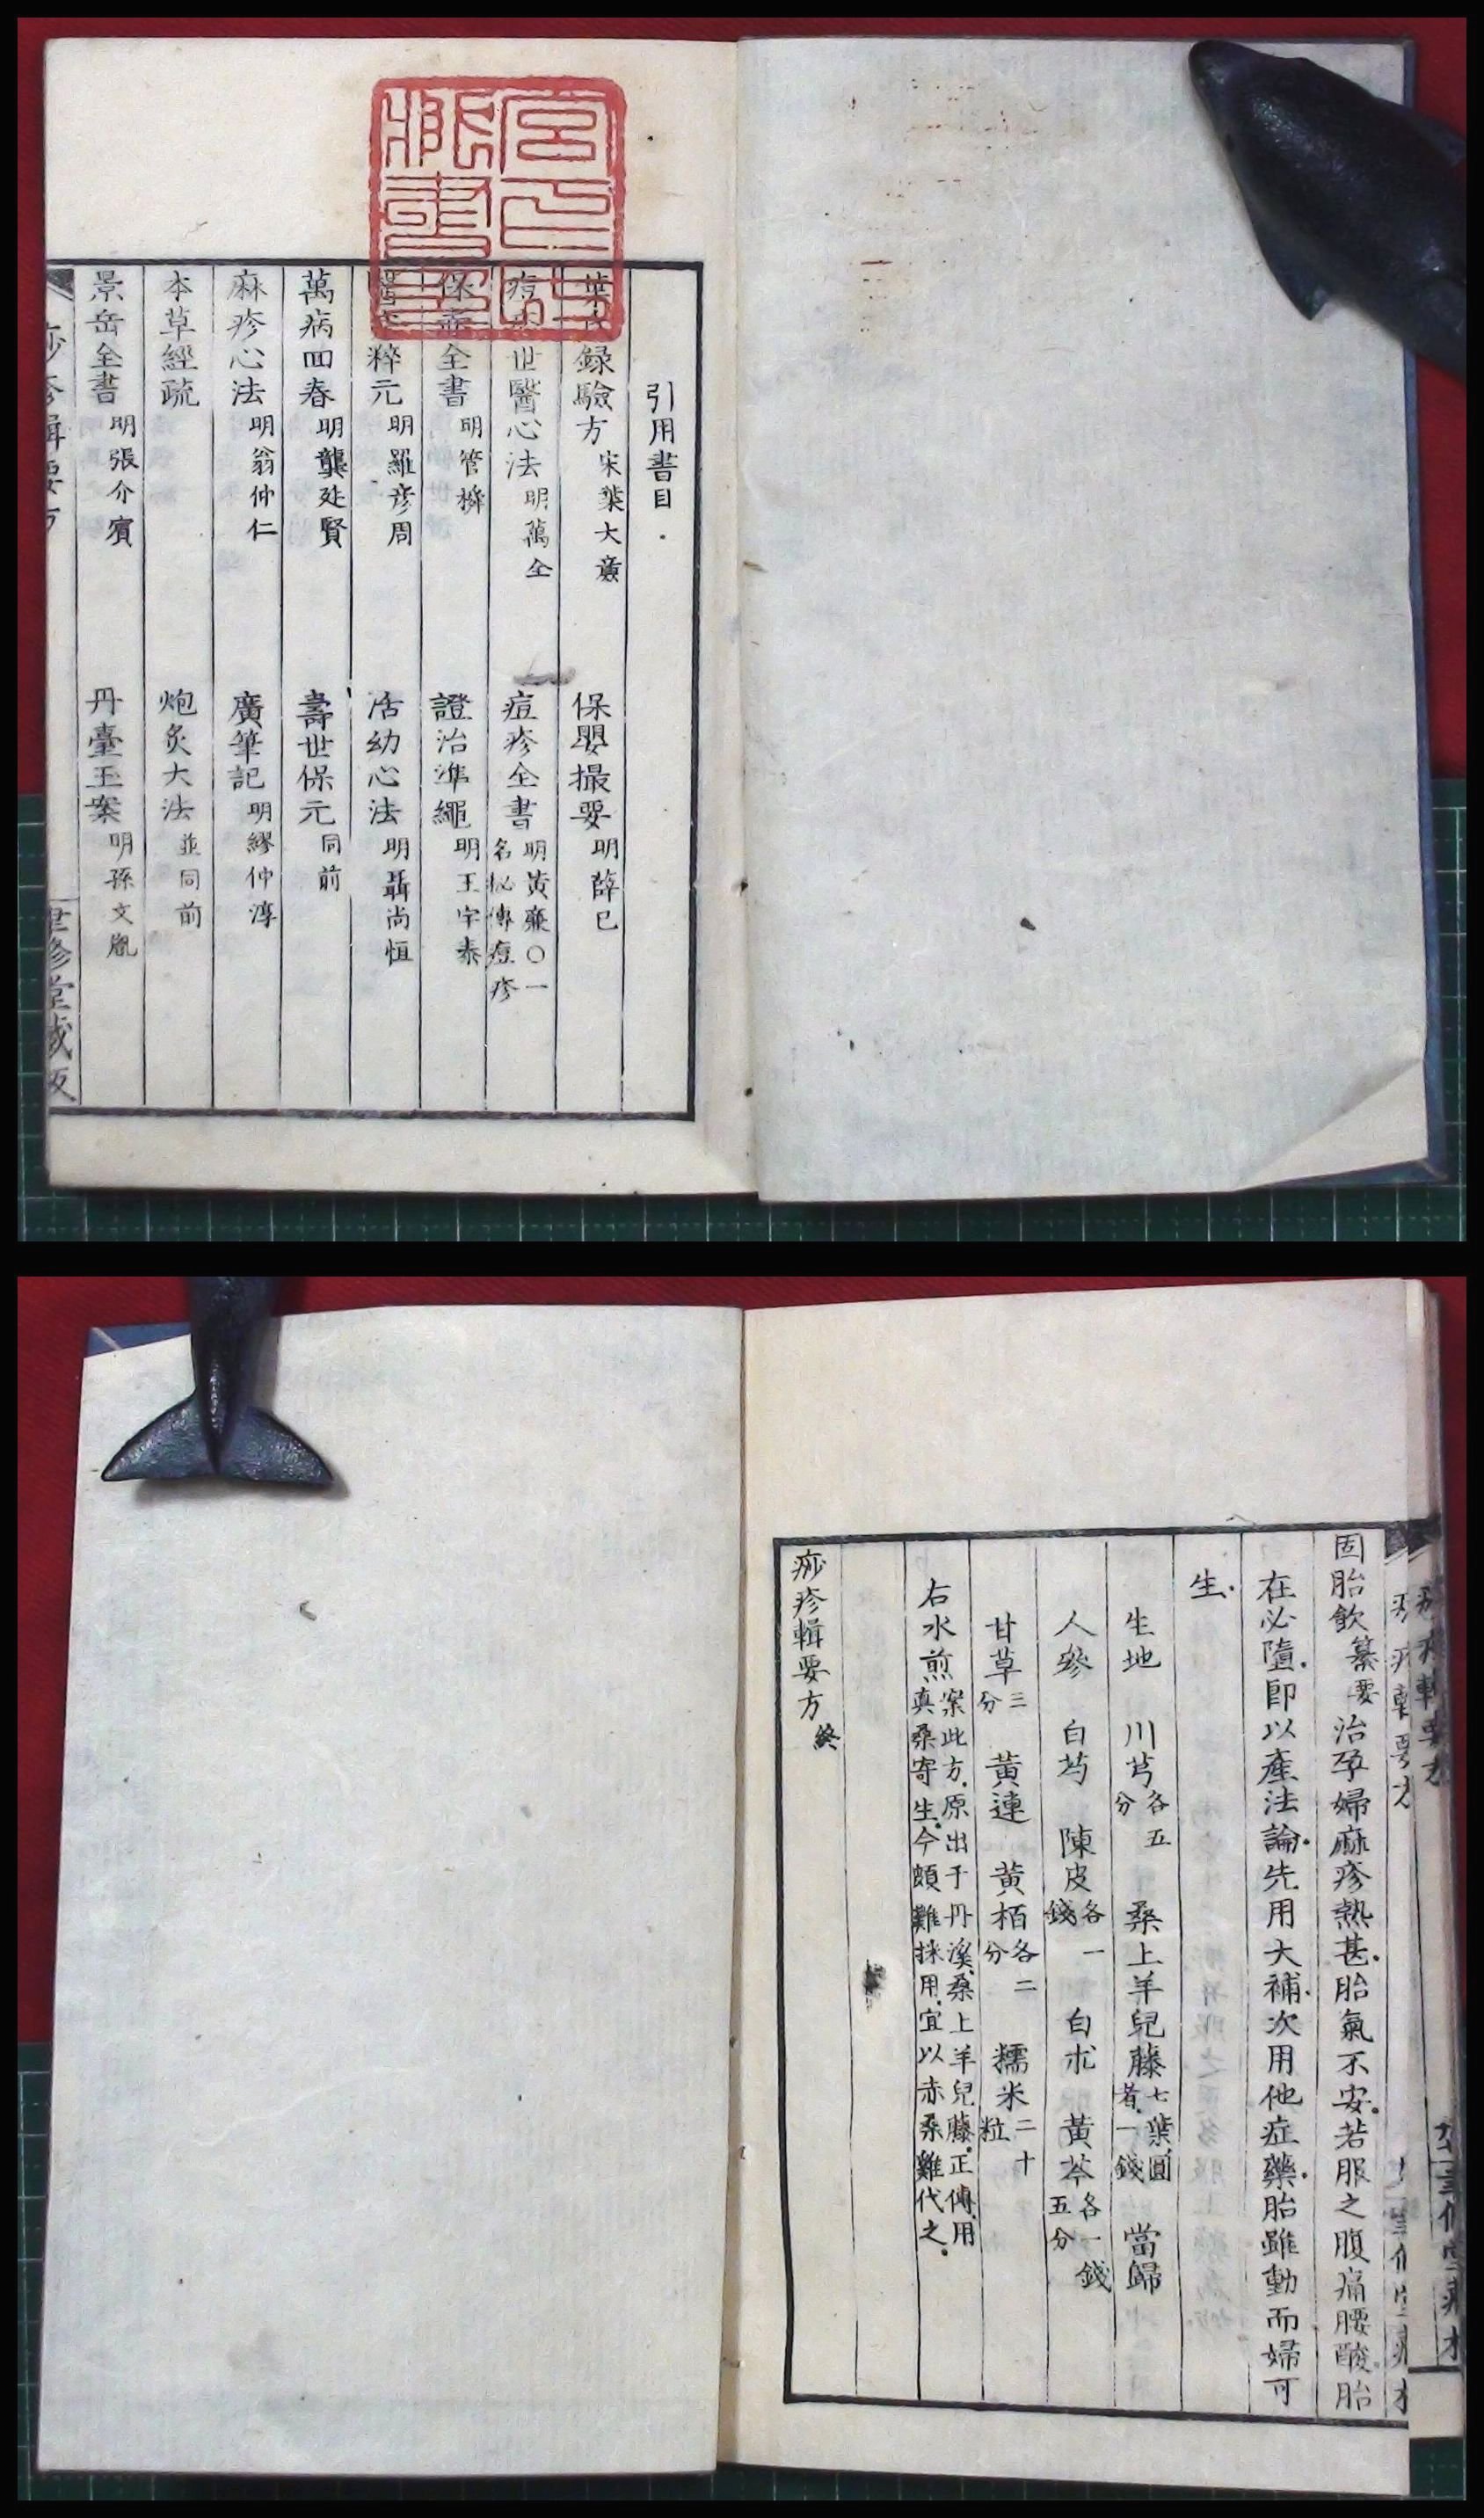 引用書目
葉氏録驗方 宋葉大廉 保嬰撮要 明薛已
痘疹世醫心法 明萬全 痘疹全書 明黃廉○一名秘傳痘疹
保赤全書 明管橓 證治準繩 明王宇泰
醫粹元 明羅彦周 活幼心法 明聶尚恒
萬病回春 明龔廷賢 壽世保元 同前
麻疹心法 明翁仲仁 廣筆記 明繆仲淳
本草經疏 炮炙大法 並同前
景岳全書 明張介賓 丹臺玉案 明孫文胤
固胎飲 纂要 治孕婦麻疹熱甚胎氣不安若服之腹痛腰酸胎
在必墮即以產法論先用大補次用他症藥胎雖動而婦可
生
生地 川芎 各五分 桑上羊兒藤 七葉圓者一錢 當歸
人參 白芍 陳皮 各一錢 白朮 黃芩 各一錢五分
甘草 三分 黃連 黃栢 各二分 糯米 二十粒
右水煎 案此方原出于丹溪桑上羊兒藤正傳用真桑寄生今頗難採用宜以赤桑雞代之
痧疹輯要方 終